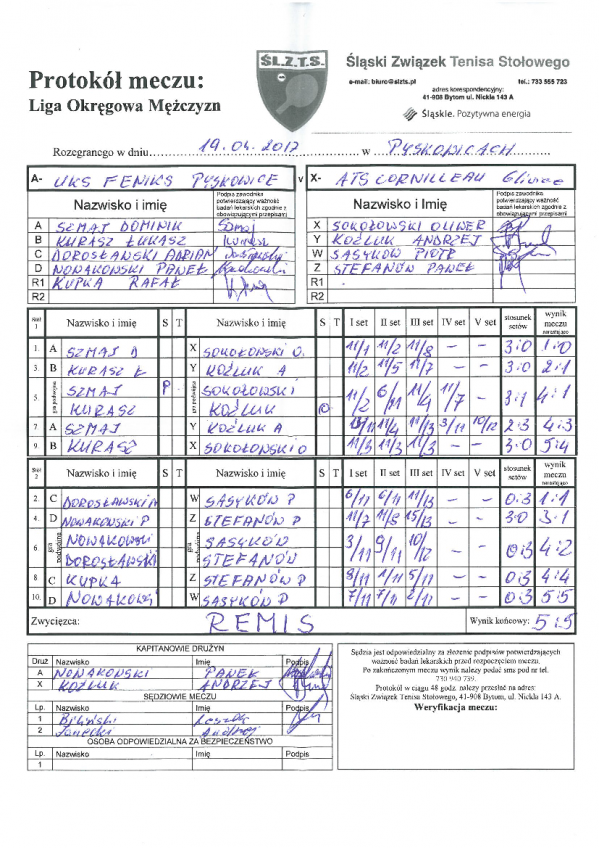 ŚL.Z.T.S.
Protokół meczu:
Liga Okręgowa Mężczyzn
Śląski Związek Tenisa Stołowego
e-mail: biuro@slzts.pl tel.: 733 555 723
adres korespondencyjny:
41-908 Bytom ul. Nickla 143 A
Śląskie. Pozytywna energia
Rozegranego w dniu 19.04.2017 w PYSKOWICACH
A- UKS FENIKS PYSKOWICE v X- ATS CORNILLEAU Gliwice
Nazwisko i imię Podpis zawodnika potwierdzający ważność badań lekarskich zgodnie z obowiązującymi przepisami Nazwisko i Imię Podpis zawodnika potwierdzający ważność badań lekarskich zgodnie z obowiązującymi przepisami
A SZMAJ DOMINIK Szmaj X SOKOŁOWSKI OLIWER
B KURASZ ŁUKASZ Kurasz Y KOŹLUK ANDRZEJ
C DOROSŁAWSKI ADRIAN W SASYKÓW PIOTR
D NOWAKOWSKI PAWEŁ Z STEFANÓW PAWEŁ
R1 KUPKA RAFAŁ R1
R2 R2
Stół 1 Nazwisko i imię S T Nazwisko i imię S T I set II set III set IV set V set stosunek setów wynik meczu narastająco
1. A SZMAJ D X SOKOŁOWSKI O. 11/1 11/2 11/8 – – 3:0 1:0
3. B KURASZ Ł Y KOŹLUK A 11/2 11/5 11/7 – – 3:0 2:1
5. gra podwójna SZMAJ P gra podwójna SOKOŁOWSKI 11/2 6/11 11/4 11/7 – 3:1 4:1
KURASZ KOŹLUK
7. A SZMAJ Y KOŹLUK A 11/4 11/13 3/11 10/12 2:3 4:3
9. B KURASZ X SOKOŁOWSKI O 11/3 11/3 11/3 – – 3:0 5:4
Stół 2 Nazwisko i imię S T Nazwisko i imię S T I set II set III set IV set V set stosunek setów wynik meczu narastająco
2. C DOROSŁAWSKI A W SASYKÓW P 6/11 6/11 11/13 – – 0:3 1:1
4. D NOWAKOWSKI P Z STEFANÓW P 11/7 11/8 15/13 – – 3:0 3:1
6. gra podwójna NOWAKOWSKI gra podwójna SASYKÓW 3/11 9/11 10/12 – – 0:3 4:2
DOROSŁAWSKI STEFANÓW
8. C KUPKA Z STEFANÓW P 8/11 1/11 5/11 – – 0:3 4:4
10. D NOWAKOWSKI W SASYKÓW P 7/11 7/11 2/11 – – 0:3 5:5
Zwycięzca: REMIS Wynik końcowy: 5:5
KAPITANOWIE DRUŻYN
Druż Nazwisko Imię Podpis
A NOWAKOWSKI PAWEŁ
X KOŹLUK ANDRZEJ
SĘDZIOWIE MECZU
Lp. Nazwisko Imię Podpis
1 Biliński Leszek
2 Janecki Andrzej
OSOBA ODPOWIEDZIALNA ZA BEZPIECZEŃSTWO
Lp. Nazwisko Imię Podpis
1
Sędzia jest odpowiedzialny za złożenie podpisów potwierdzających
ważność badań lekarskich przed rozpoczęciem meczu.
Po zakończonym meczu wynik należy podać sms pod nr tel.
730 940 739.
Protokół w ciągu 48 godz. należy przesłać na adres:
Śląski Związek Tenisa Stołowego, 41-908 Bytom, ul. Nickla 143 A.
Weryfikacja meczu: